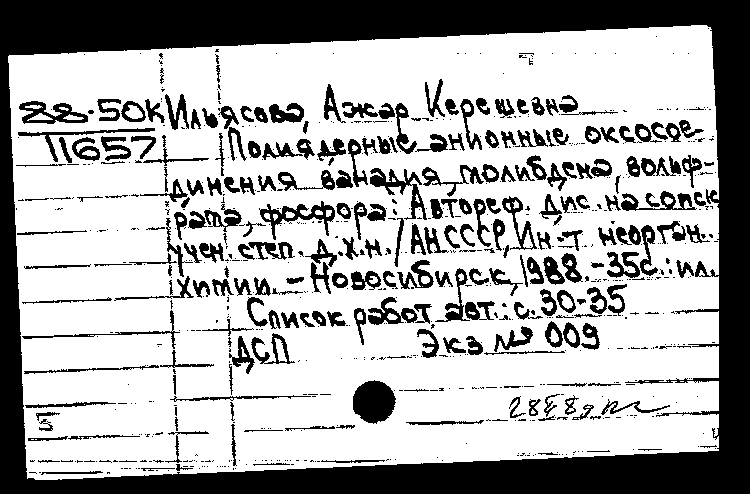 88-50к Ильясова, Ажар Керешевна
11657 Полиядерные анионные оксосое-
динения ванадия, молибдена, вольф-
рама, фосфора: Автореф. дис. на соиск
учен. степ. д.х.н. / АН СССР, Ин-т неорган.
химии. - Новосибирск, 1988. - 35с.: ил.
Список работ авт.: с. 30-35
ДСП Экз № 009